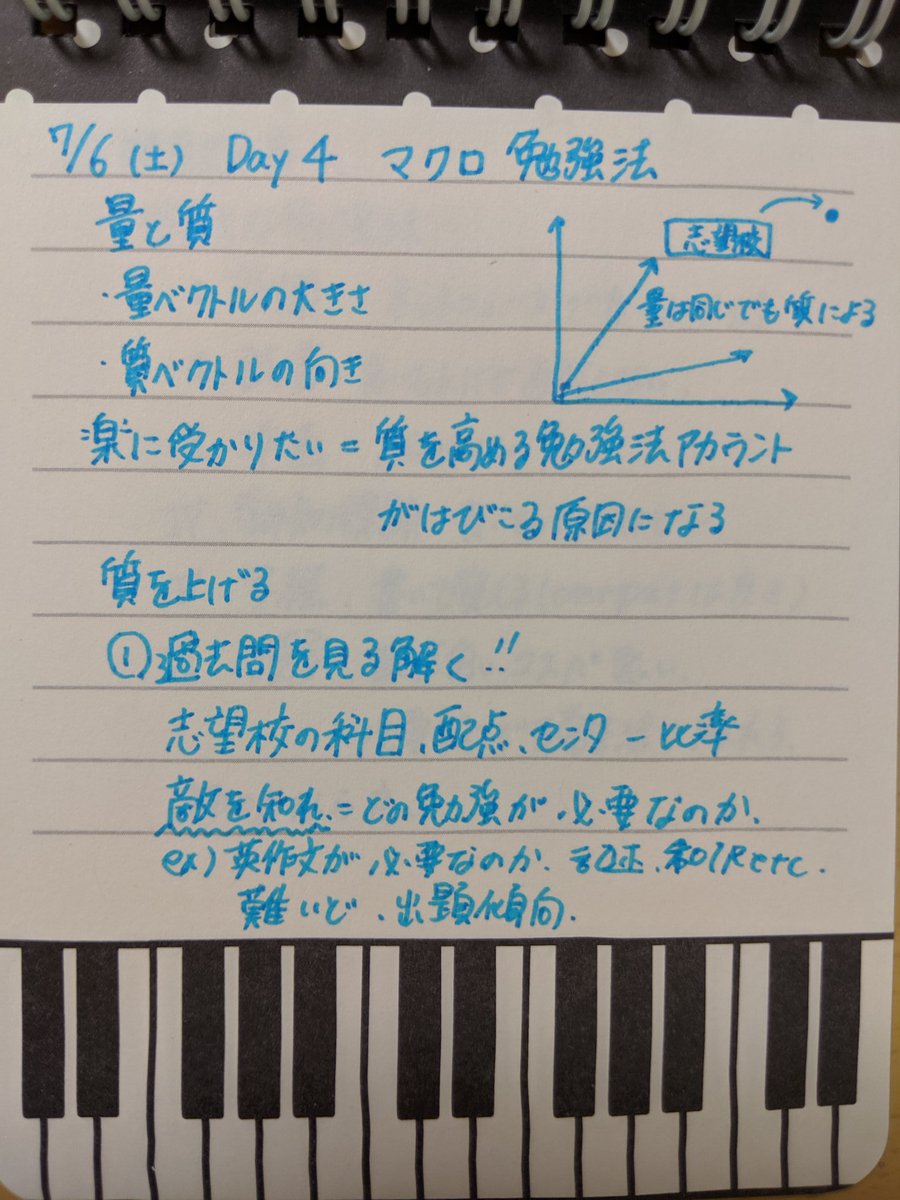 7/6(土) Day 4 マクロ 勉強法
量と質
志望校
・量ベクトルの大きさ
量は同じでも質による
・質ベクトルの向き
楽に受かりたい = 質を高める勉強法アカウント
がはびこる原因になる
質を上げる
①過去問を見る解く!!
志望校の科目、配点、センター比率
敵を知れ = どの勉強が必要なのか、
ex) 英作文が必要なのか、記述、和訳etc.
難いど、出題傾向.